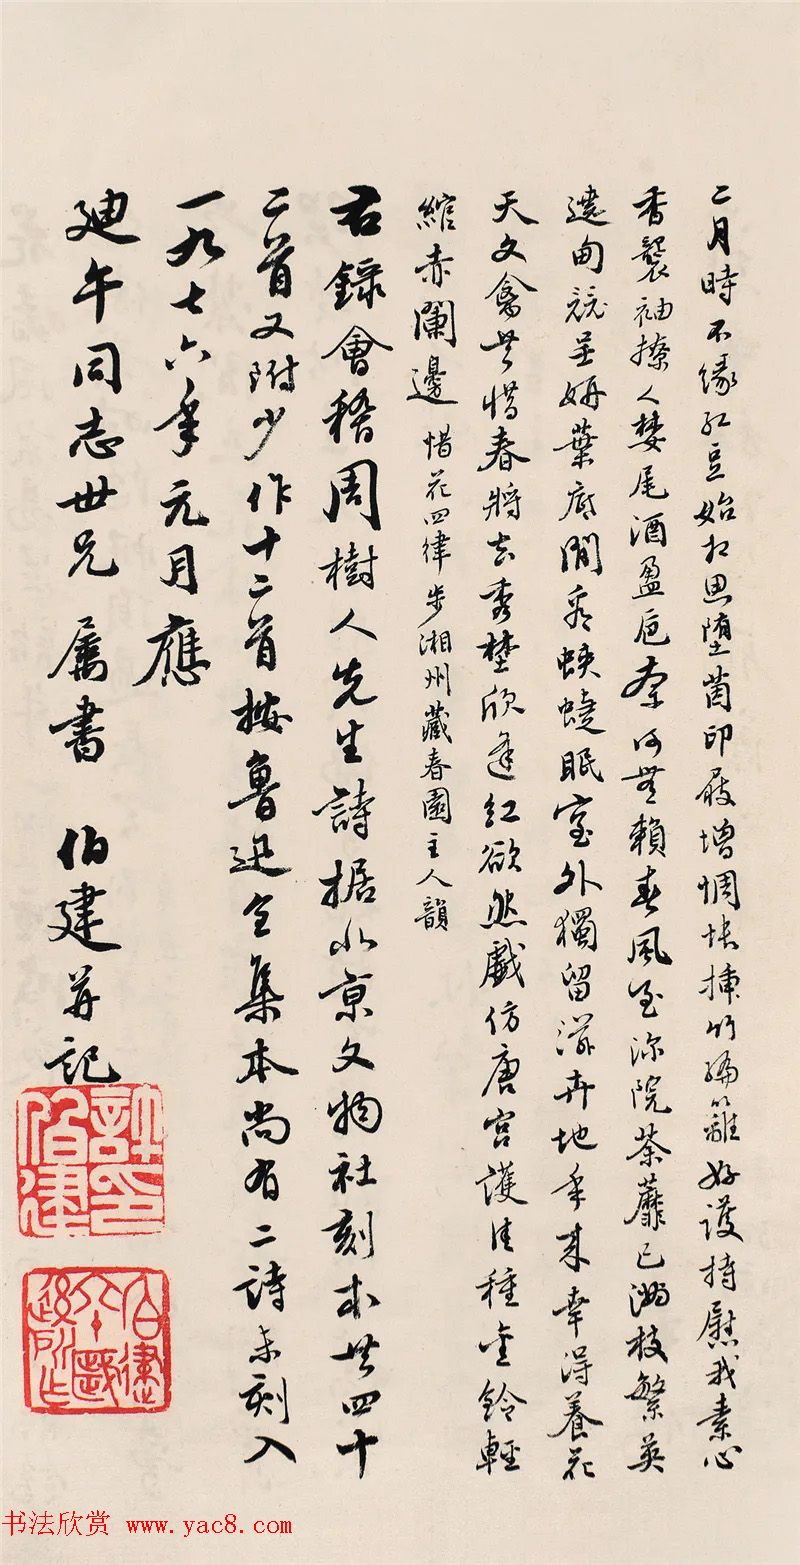 二月時不緣紅豆始相思堕茵印屐增惆悵插竹編籬好護持慰我素心
香襲袖撩人婪尾酒盈卮奈何無賴春風至深院荼蘼已滿枝繁英
遶甸競呈妍葉底閒看蛺蝶眠室外獨留滋卉地年來幸得養花
天文禽共惜春將去秀埜欣逢紅欲然戲仿唐宮護佳種金鈴輕
綰赤闌邊 惜花四律步湘州藏春園主人韻
右録會稽周樹人先生詩据北京文物社刻本共四十
二首又附少作十二首按魯迅全集本尚有二詩未刻入
一九七六年元月應
廸午同志世兄 属書 伯建并記
許伯建印
書法欣赏 www.yac8.com